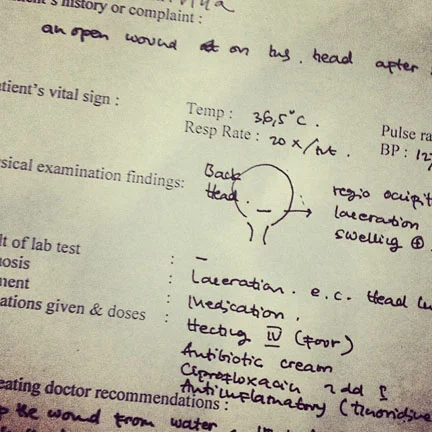 's history or complaint :
an open wound on his head after
tient's vital sign :
Temp : 36,5°C .
Pulse ra
Resp Rate : 20 x/mt .
BP : 12
sical examination findings:
Back
Head.
regio ocipit
laceration
swelling ⊕
lt of lab test : -
nosis : Laceration . e.c. Head
ment : Medication ,
ations given & doses : Hecting IV (four)
Antibiotic cream
Ciprofloxacin 2 dd
Antiinflamatory (
eating doctor recommendations :
the wound from water ,